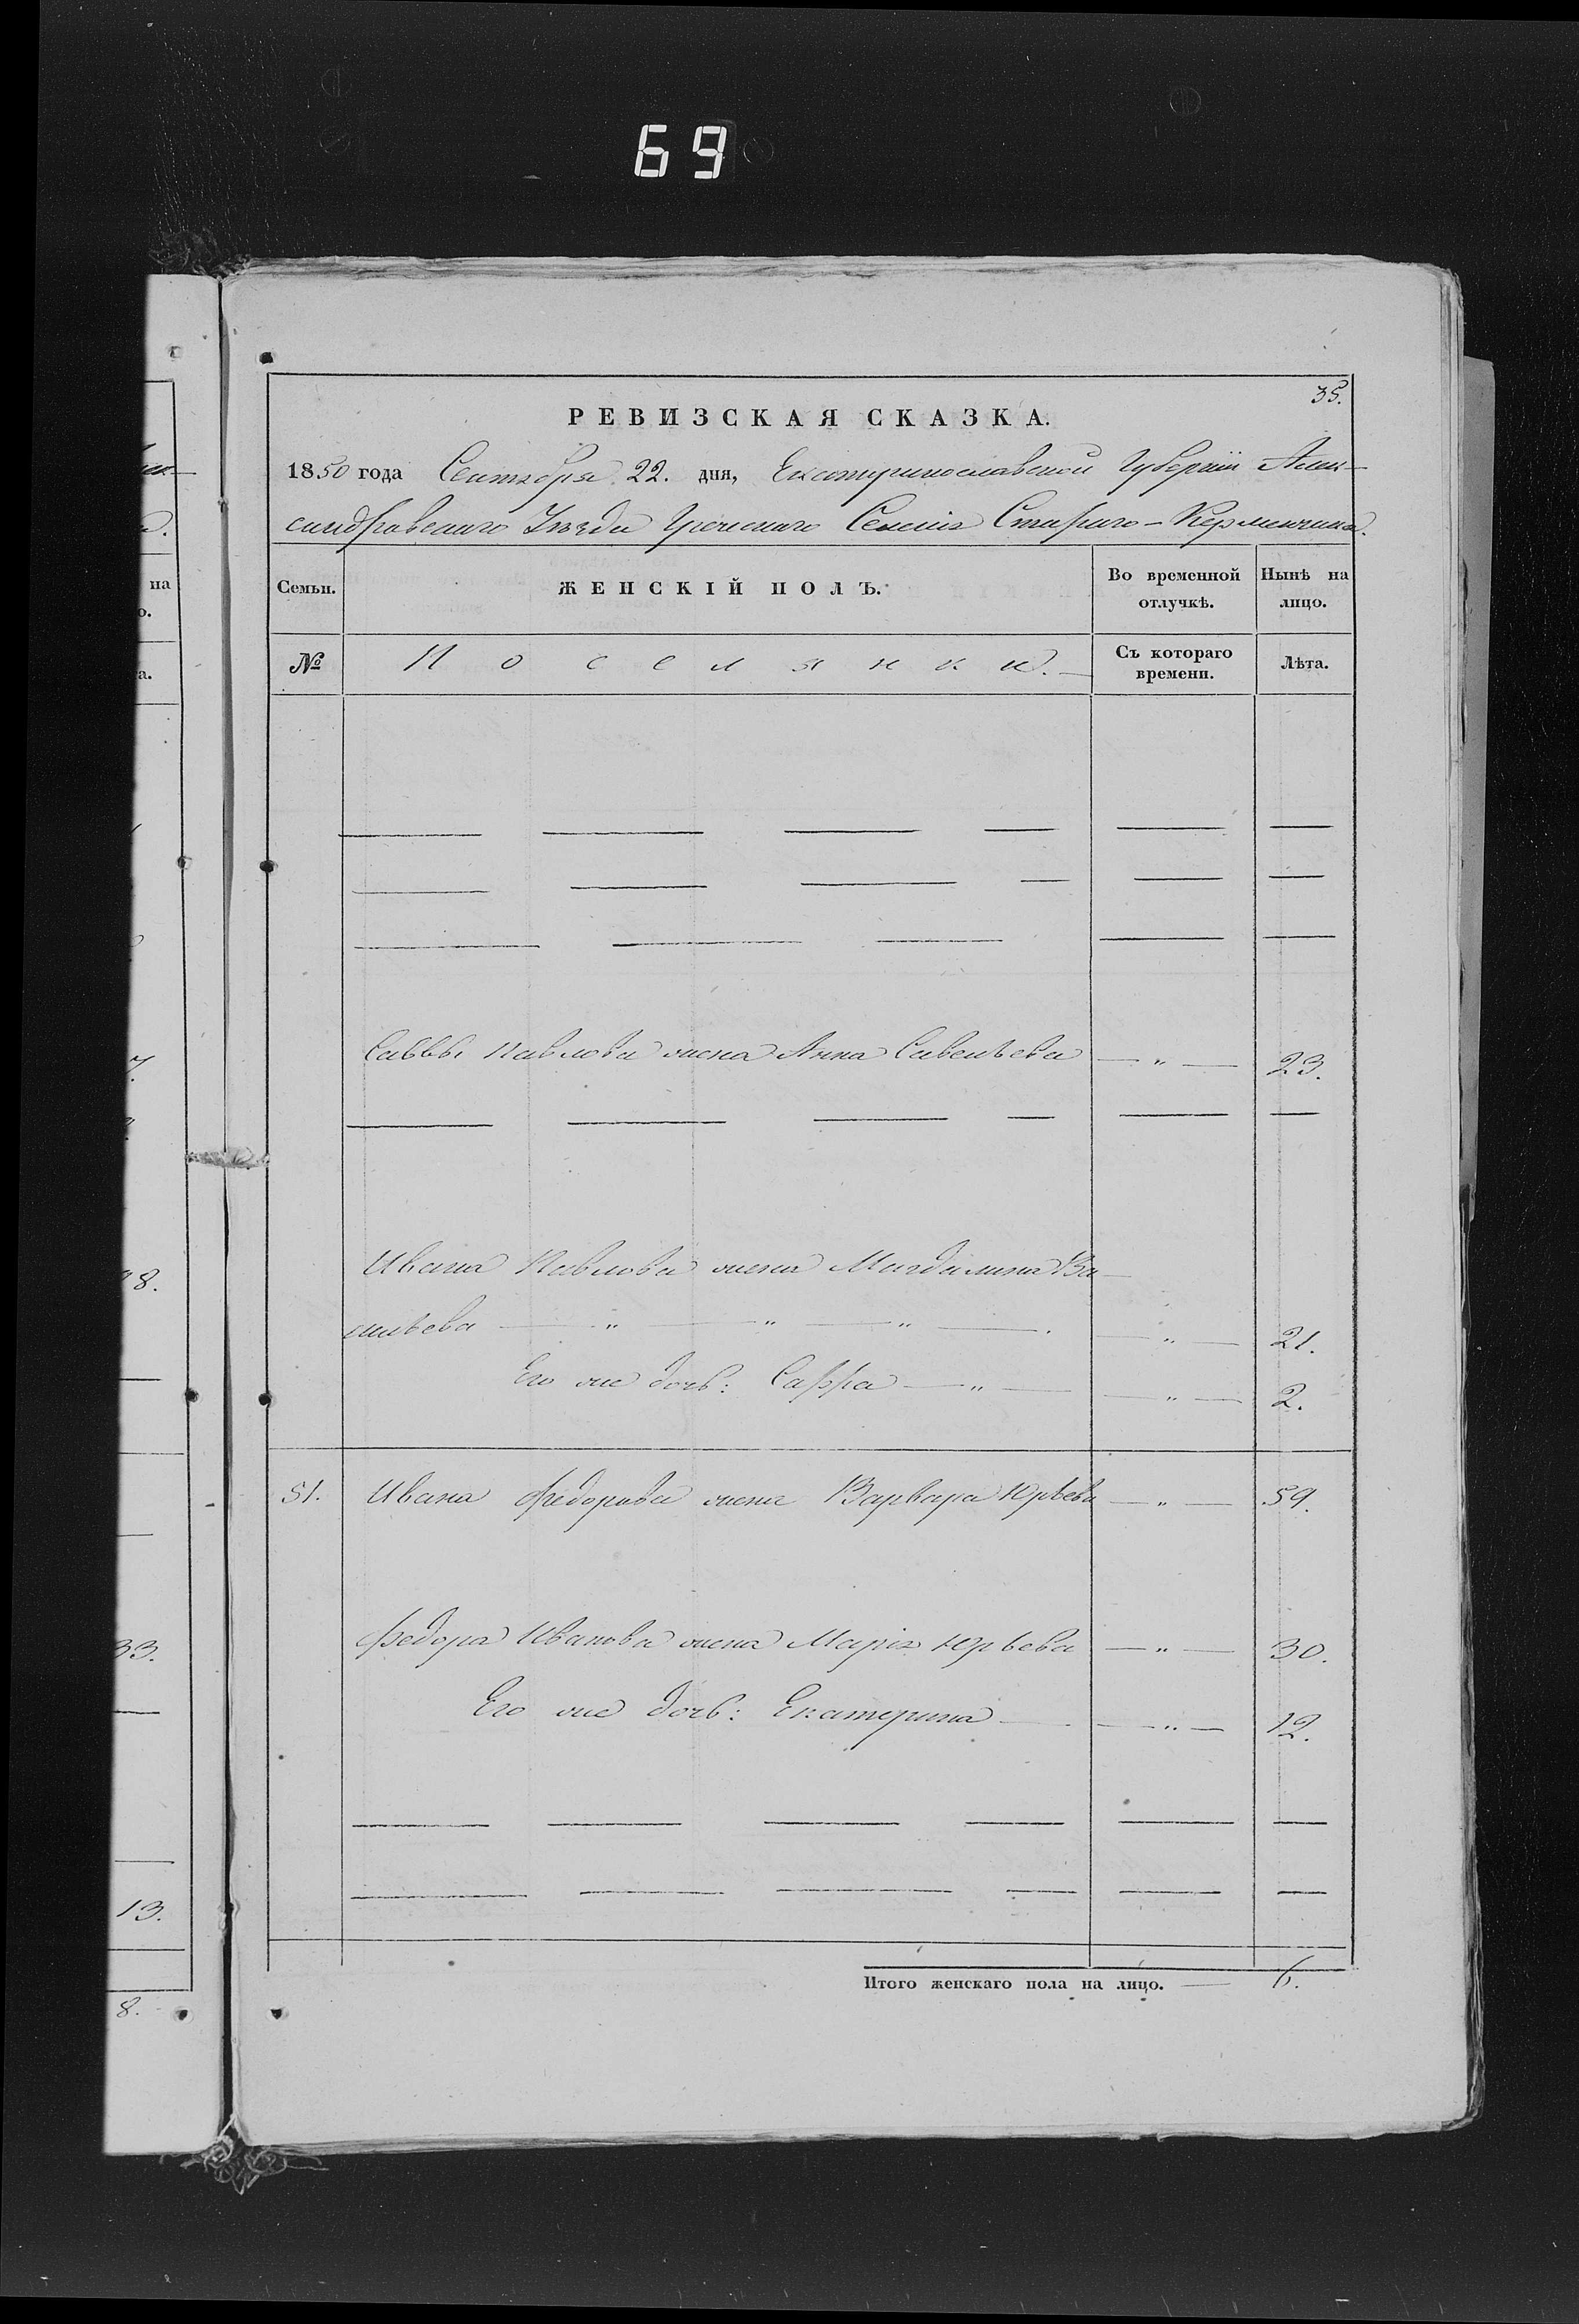 69
35.
РЕВИЗСКАЯ СКАЗКА.
1850 года Сентября 22. дня, Екатеринославской Губерніи Алек-
сандровскаго Уѣзда Греческаго Селенія Стараго-Керменчика.
Семьи. ЖЕНСКІЙ ПОЛЪ. Во временной отлучкѣ. Нынѣ на лицо.
№ Поселянки. Съ котораго времени. Лѣта.
Саввы Павлова жена Анна Савельева — " — 23.
Ивана Павлова жена Магдалина Ва-
сильева — " — " — " — . — " — 21.
Его же дочь: Сарра — " — — " — 2.
51. Ивана Федорова жена Варвара Юрьева — " — 59.
Федора Иванова жена Марія Юрьева — " — 30.
Его же дочь: Екатерина — — " — 12.
Итого женскаго пола на лицо. — 6.
на
о.
а.
7.
98.
33.
13.
8.